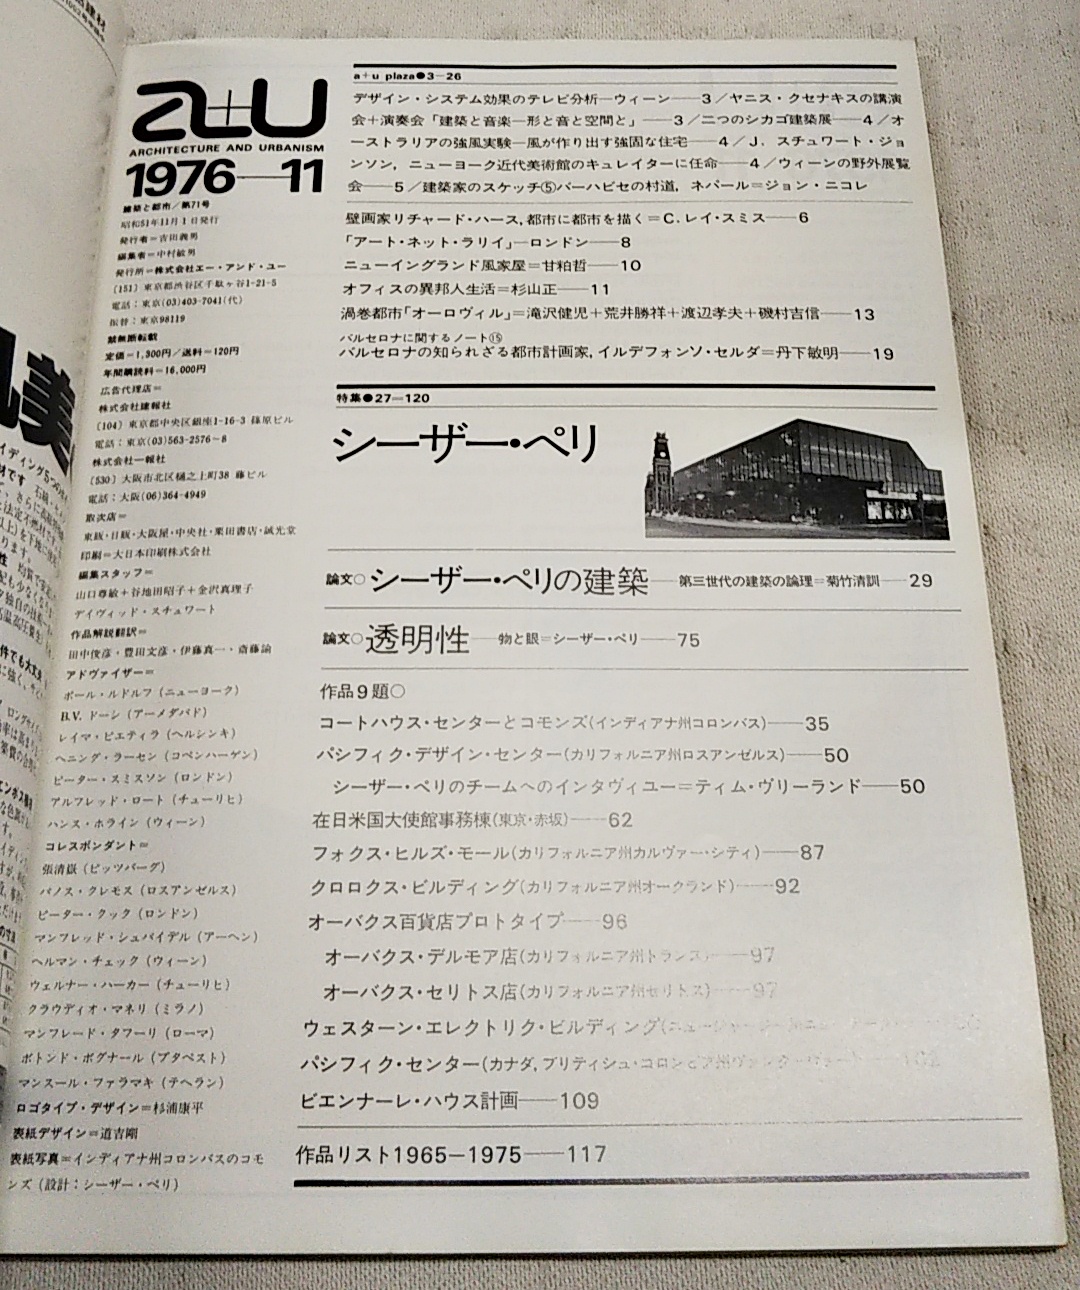 a+u
ARCHITECTURE AND URBANISM
1976—11
建築と都市／第71号
昭和51年11月1日発行
発行者=吉田義男
編集者=中村敏男
発行所=株式会社エー・アンド・ユー
(151) 東京都渋谷区千駄ヶ谷1-21-5
電話：東京(03)403-7041(代)
振替：東京98119
禁無断転載
定価=1,300円／送料=120円
年間購読料=16,000円
広告代理店=
株式会社建報社
(104) 東京都中央区銀座1-16-3 篠原ビル
電話：東京(03)563-2576~8
株式会社一報社
(530) 大阪市北区樋之上町38 藤ビル
電話：大阪(06)364-4949
取次店=
東販・日販・大阪屋・中央社・栗田書店・誠光堂
印刷=大日本印刷株式会社
編集スタッフ=
山口尊敏+谷地田昭子+金沢真理子
デイヴィッド・スチュワート
作品解説翻訳=
田中俊彦・豊田文彦・伊藤真一・斎藤諭
アドヴァイザー=
ポール・ルドルフ (ニューヨーク)
B.V. ドーシ (アーメダバド)
レイマ・ピエティラ (ヘルシンキ)
ヘニング・ラーセン (コペンハーゲン)
ピーター・スミスソン (ロンドン)
アルフレッド・ロート (チューリヒ)
ハンス・ホライン (ウィーン)
コレスポンダント=
張清嶽 (ピッツバーグ)
パノス・クレモス (ロスアンゼルス)
ピーター・クック (ロンドン)
マンフレッド・シュパイデル (アーヘン)
ヘルマン・チェック (ウィーン)
ウェルナー・ハーカー (チューリヒ)
クラウディオ・マネリ (ミラノ)
マンフレード・タフーリ (ローマ)
ボトンド・ボグナール (ブタペスト)
マンスール・ファラマキ (テヘラン)
ロゴタイプ・デザイン=杉浦康平
表紙デザイン=道吉剛
表紙写真=インディアナ州コロンバスのコモ
ンズ (設計：シーザー・ペリ)
a+u plaza●3—26
デザイン・システム効果のテレビ分析—ウィーン——3／ヤニス・クセナキスの講演
会+演奏会「建築と音楽—形と音と空間と」——3／二つのシカゴ建築展——4／オ
ーストラリアの強風実験—風が作り出す強固な住宅——4／J. スチュワート・ジョ
ンソン, ニューヨーク近代美術館のキュレイターに任命——4／ウィーンの野外展覧
会——5／建築家のスケッチ⑤バーハビセの村道, ネパール=ジョン・ニコレ
壁画家リチャード・ハース, 都市に都市を描く=C. レイ・スミス——6
「アート・ネット・ラリイ」—ロンドン——8
ニューイングランド風家屋=甘粕哲——10
オフィスの異邦人生活=杉山正——11
渦巻都市「オーロヴィル」=滝沢健児+荒井勝祥+渡辺孝夫+磯村吉信——13
バルセロナに関するノート⑮
バルセロナの知られざる都市計画家, イルデフォンソ・セルダ=丹下敏明——19
特集●27—120
シーザー・ペリ
論文○シーザー・ペリの建築——第三世代の建築の論理=菊竹清訓——29
論文○透明性——物と眼=シーザー・ペリ——75
作品9題○
コートハウス・センターとコモンズ(インディアナ州コロンバス)——35
パシフィク・デザイン・センター(カリフォルニア州ロスアンゼルス)——50
シーザー・ペリのチームへのインタヴィユー=ティム・ヴリーランド——50
在日米国大使館事務棟(東京・赤坂)——62
フォクス・ヒルズ・モール(カリフォルニア州カルヴァー・シティ)——87
クロロクス・ビルディング(カリフォルニア州オークランド)——92
オーバクス百貨店プロトタイプ——96
オーバクス・デルモア店(カリフォルニア州トランス)——97
オーバクス・セリトス店(カリフォルニア州セリトス)——97
ウェスターン・エレクトリク・ビルディング
パシフィク・センター(カナダ, ブリティシュ・コロンビア州
ビエンナーレ・ハウス計画——109
作品リスト1965—1975——117